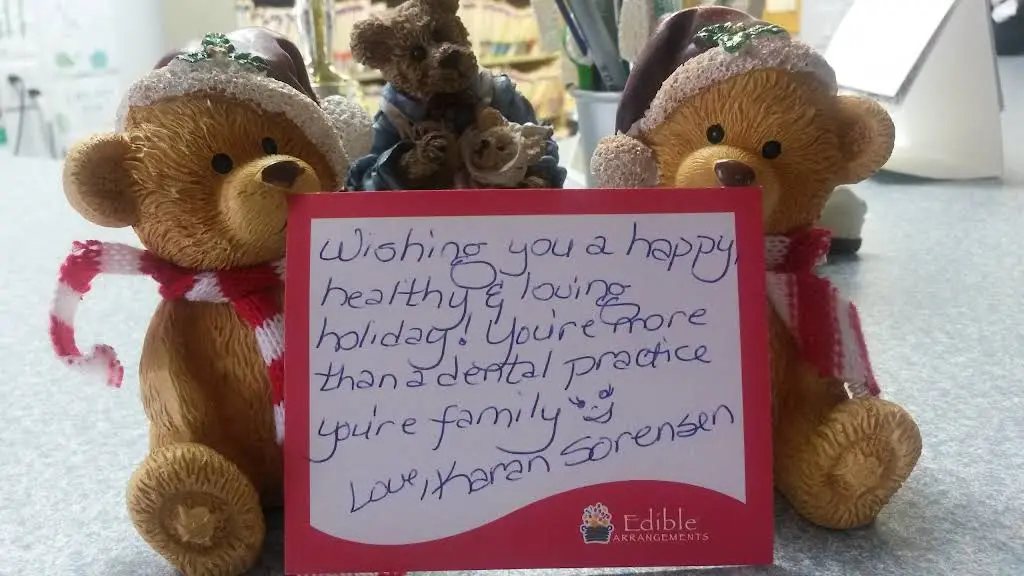 Wishing you a happy,
healthy & loving
holiday! You're more
than a dental practice
you're family
Love, Karan Sorensen
Edible
ARRANGEMENTS